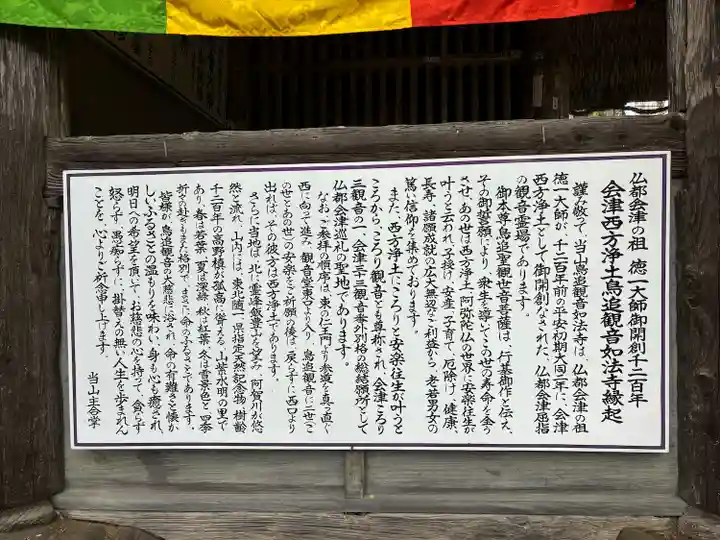 仏都会津の祖 徳一大師御開創千二百年
会津西方浄土鳥追観音如法寺縁起
謹み敬って、当山鳥追観音如法寺は、仏都会津の祖
徳一大師が、千二百年前の平安初期大同二年に、会津
西方浄土として御開創なされた、仏都会津屈指
の観音霊場であります。
御本尊鳥追聖観世音菩薩は、行基御作と伝え、
その御誓願により、衆生を導いてこの世の寿命を全う
させ、あの世は西方浄土・阿弥陀仏の世界で安楽往生が
叶うと云われ、子授け・安産・子育て・厄除け・健康・
長寿、諸願成就の広大無辺なご利益から、老若男女の
篤い信仰を集めております。
また、西方浄土にころりと安楽往生が叶うと
ころから、ころり観音とも尊称され、会津ころり
三観音の一、会津三十三観音番外別格の総結願所として
仏都会津巡礼の聖地であります。
なお、ご参拝の順序は、東の仁王門より参道を真っ直ぐ
西に向って進み、観音堂東口より入り、鳥追観音に二世(こ
の世とあの世)の安楽をご祈願の後は、戻らずに西口より
出れば、その彼方は西方浄土であります。
さらに当地は、北に霊峰飯豊山を望み、阿賀川が悠
然と流れ、山内には、東北随一県指定天然記念物・樹齢
千二百年の高野槙が孤高に聳える、山紫水明の里で
あり、春は若葉、夏は深緑、秋は紅葉、冬は雪景色と四季
折々の趣きもまた格別で、まさに命のすることであります。
皆様が、鳥追観音の大慈悲に浴され、命の有難さと懐か
しいふるさとの温もりを味わい、身も心も癒され、
明日への希望を頂いて、お慈悲の心を持って、貪らず
怒らず、愚痴らずに、掛替えの無い人生を歩まれん
ことを、心よりご祈念申し上げます。
当山主合掌